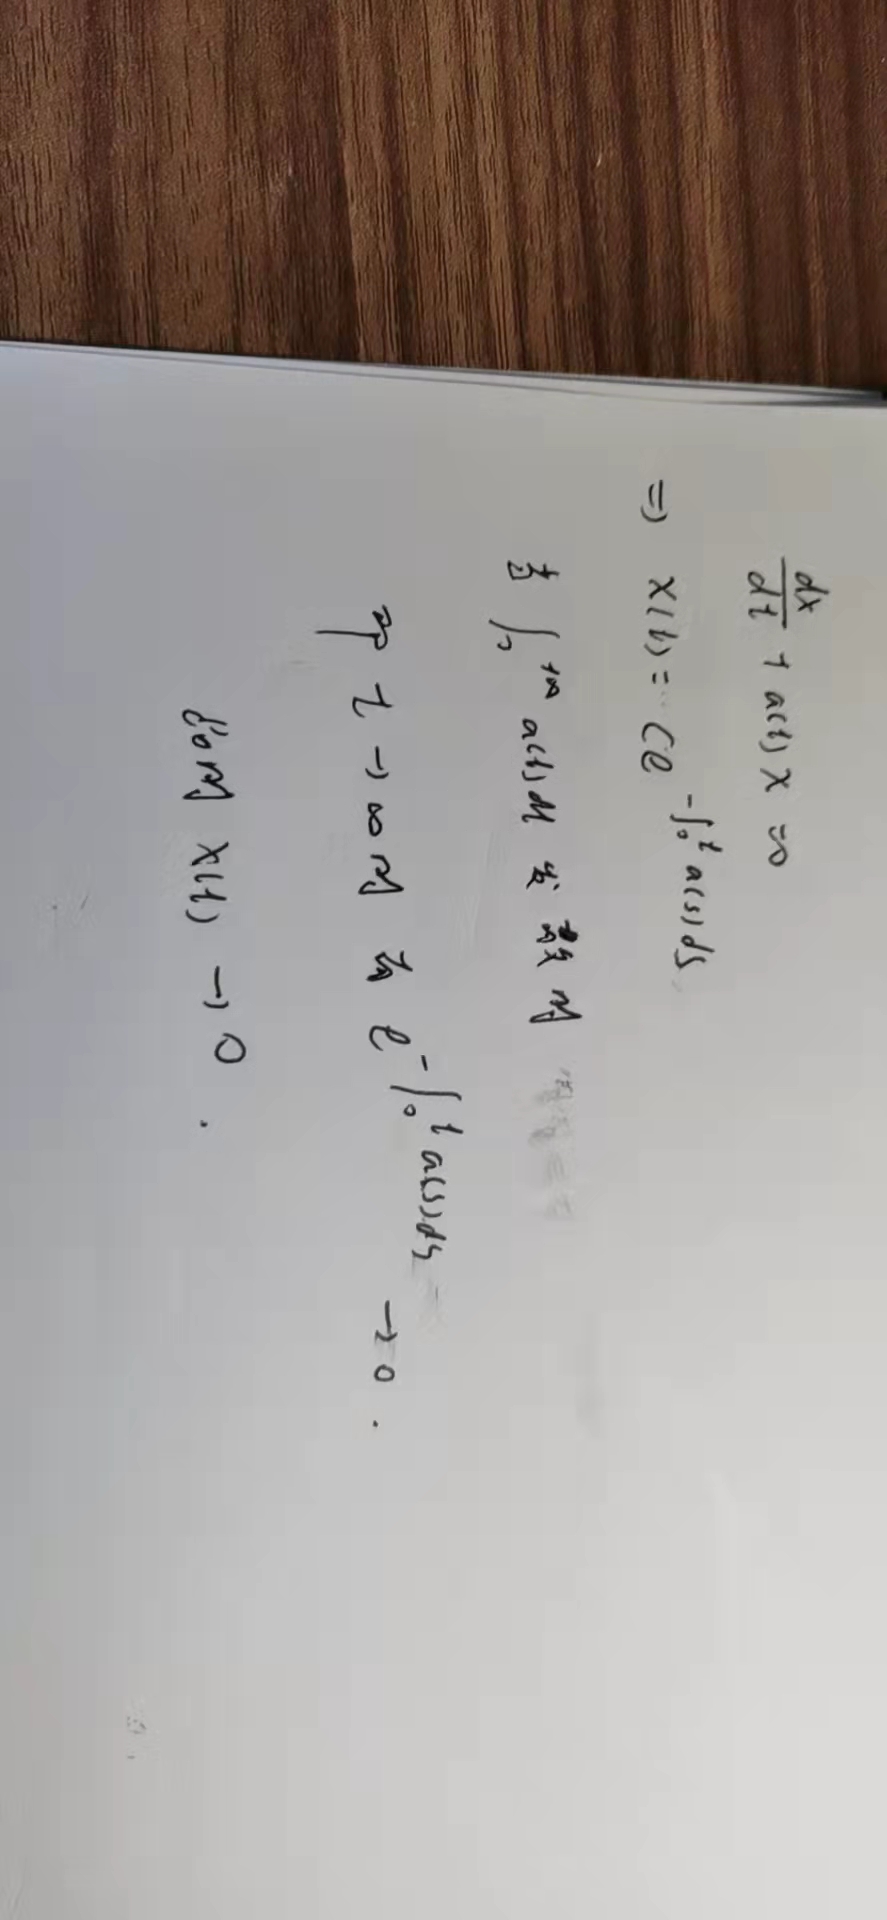 dx/dt + a(t)x = 0
⇒ x(t) = Ce^{-∫_0^t a(s)ds}
若 ∫_0^{+∞} a(t)dt 发散时
即 t → ∞ 时 有 e^{-∫_0^t a(s)ds} → 0.
此时 x(t) → 0.